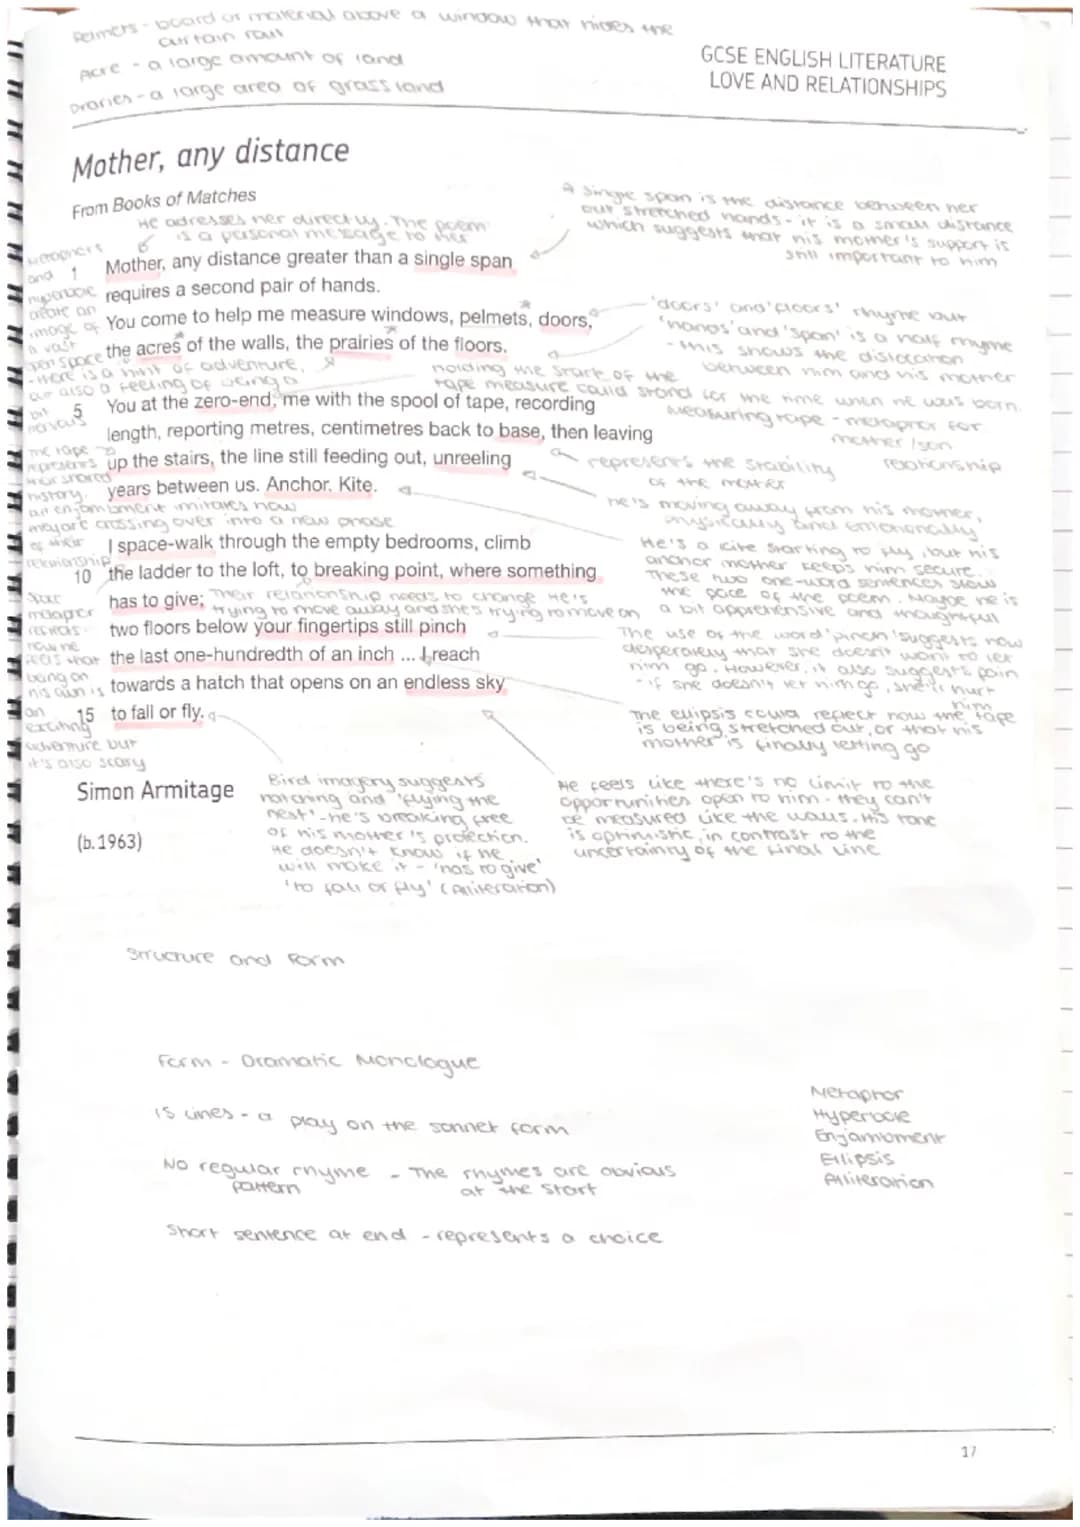 Pelmets - board or material above a window that hides the
curtain rail
Acre - a large amount of land
Praries - a large area of grass land
GCSE ENGLISH LITERATURE
LOVE AND RELATIONSHIPS
Mother, any distance
From Books of Matches
He adresses her directly. The poem
is a personal message to her
A single span is the distance between her
out stretched hands - it is a small distance
which suggests that his mother's support is
still important to him
Metaphers
and
hyperbole
create an
image of
a vast
open space
- there is a hint of adventure,
but also a feeling of being a
bit
nervous
1 Mother, any distance greater than a single span
requires a second pair of hands.
You come to help me measure windows, pelmets, doors,
the acres of the walls, the prairies of the floors.
'doors' and 'floors' rhyme but
'hands' and 'span' is a half rhyme
- this shows the dislocation
between him and his mother
holding the start of the
tape measure could stand for the time when he was born.
5 You at the zero-end, me with the spool of tape, recording
length, reporting metres, centimetres back to base, then leaving
up the stairs, the line still feeding out, unreeling
years between us. Anchor. Kite.
Measuring tape - metaphor for
mother/son
relationship
The tape
represents
their shared
history.
represents the stability
of the mother
he's moving away from his mother,
physically and emotionally
enjambment imitates how
they are crossing over into a new phase
of their
relationship
I space-walk through the empty bedrooms, climb
10 the ladder to the loft, to breaking point, where something
has to give;
Their relationship needs to change He's
trying to move away and she's trying to move on
two floors below your fingertips still pinch
the last one-hundredth of an inch ... I reach
towards a hatch that opens on an endless sky
15 to fall or fly.
He's a kite starting to fly, but his
anchor mother keeps him secure.
These two one-word sentences slow
the pace of the poem. Maybe he is
a bit apprehensive and thoughtful
Space
metaphor
reflects
how he
feels that
being on
his own is
an
exciting
adventure but
it's also scary
The use of the word 'pinch' suggests how
desperately that she doesn't want to let
him go. However, it also suggests pain
- if she doesn't let him go, she'll hurt
him
The ellipsis could reflect how the tape
is being stretched out, or that his
mother is finally letting go
Simon Armitage
(b.1963)
Bird imagery suggests
hatching and 'flying the
nest' - he's breaking free
of his mother's protection.
He doesn't know if he
will make it - 'has to give'
'to fall or fly' (Alliteration)
He feels like there's no limit to the
opportunities open to him - they can't
be measured like the walls. His tone
is optimistic, in contrast to the
uncertainty of the final line
Structure and Form
Form - Dramatic Monologue
15 lines - a play on the sonnet form
No regular rhyme - The rhymes are obvious
pattern at the start
Short sentence at end - represents a choice
Metaphor
Hyperbole
Enjambment
Ellipsis
Alliteration
17